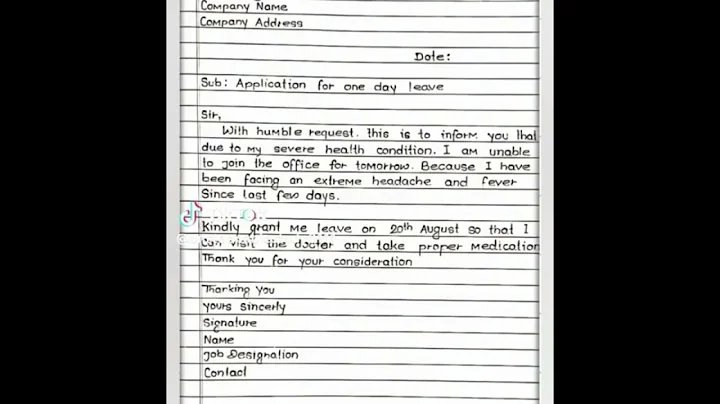 Company Name
Company Address
Dote:
Sub: Application for one day leave
Sir,
With humble request. This is to inform you that
due to my severe health condition. I am unable
to join the office for tomorrow. Because I have
been facing an extreme headache and fever
Since last few days.
Kindly grant me leave on 20th August so that I
Can visit the doctor and take proper medication
Thank you for your consideration
Thanking you
yours sincerly
Signature
Name
Job Designation
Contact